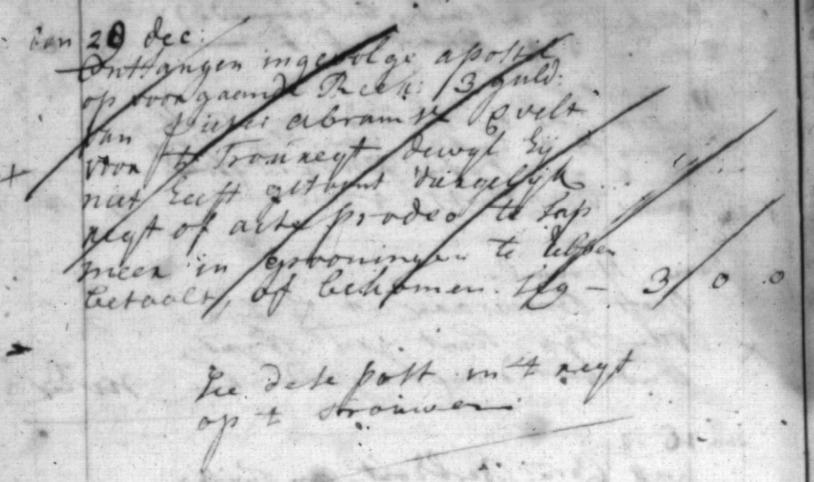 den 20 dec:
Ontfangen ingevolge apostil
op voorgaande Reek: 3 guld:
van Pieter Abrams Evelt
voor 't Trouregt dewyl hij
niet heeft getoont diergelijk
regt of acte prodeo te Sap
meer in groningen te hebben
betaalt, of bekomen. Seg – 3 0 0
Sie dese post in 't regt
op 't trouwen